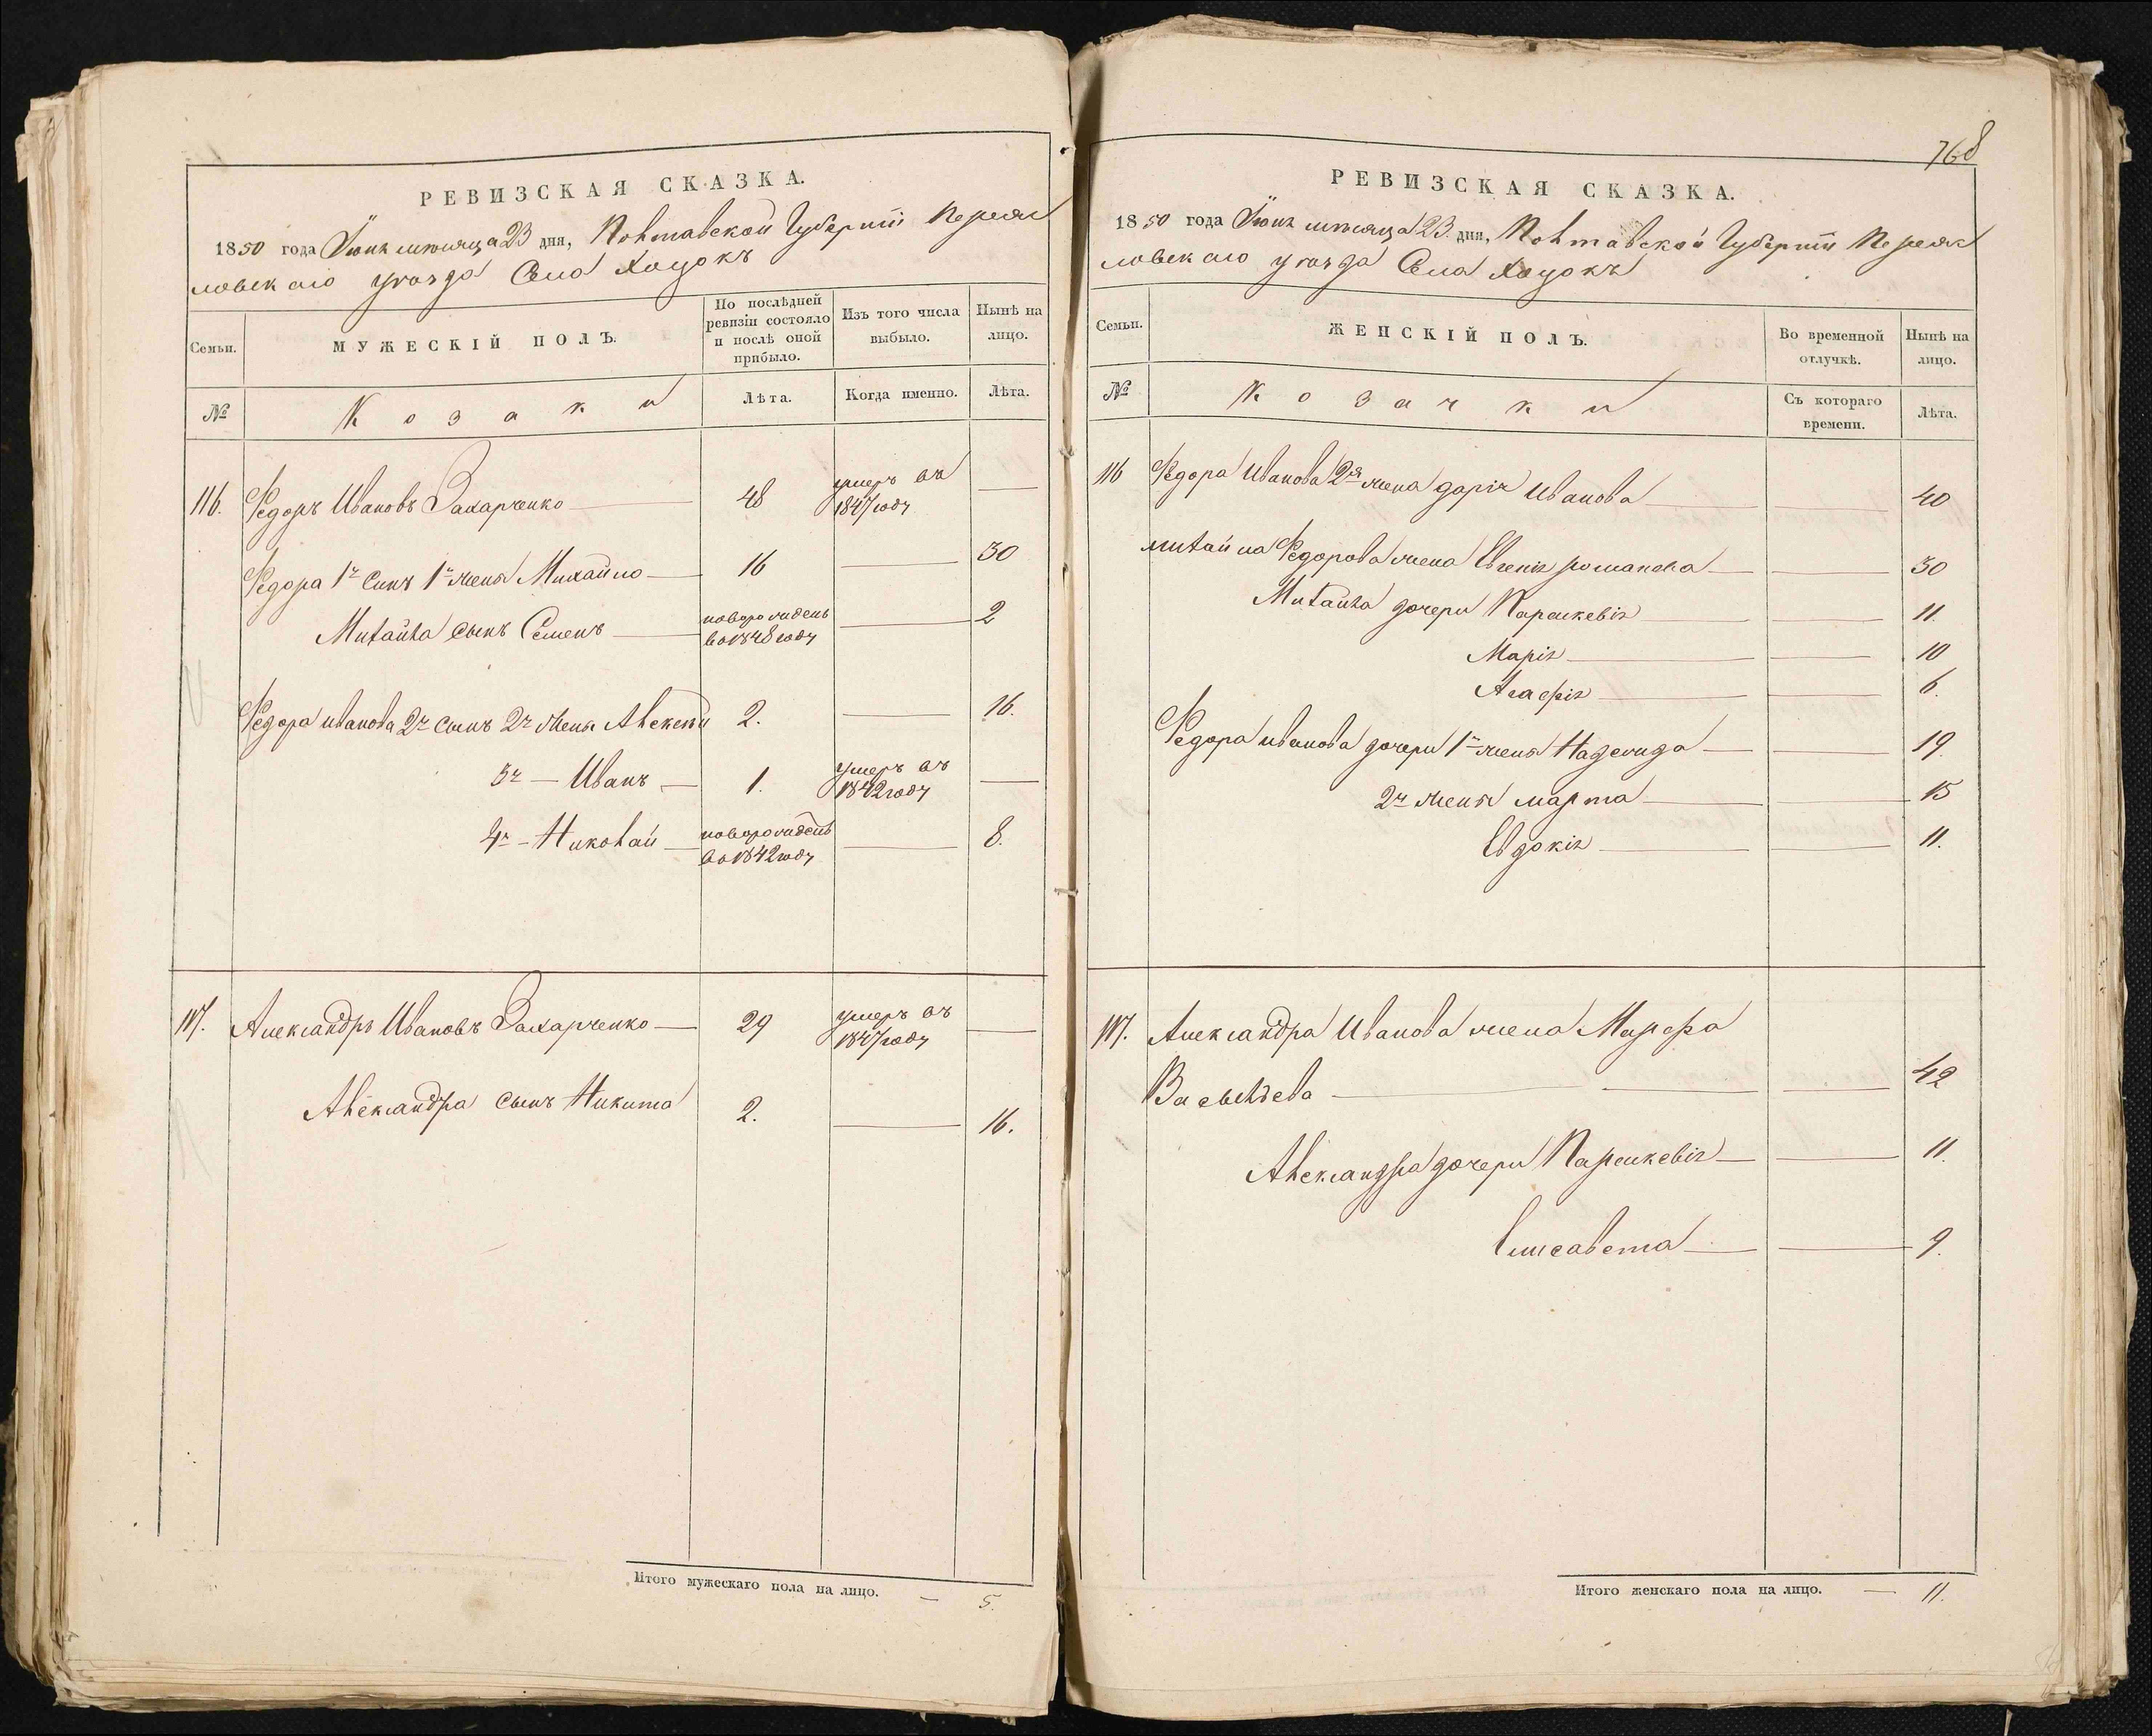 РЕВИЗСКАЯ СКАЗКА.
1850 года Іюня мѣсяца 23 дня, Полтавской Губерніи Переяс
ловскаго уѣзда Села Хоцокъ
Семьи.
МУЖЕСКІЙ ПОЛЪ.
По послѣдней
ревизіи состояло
и послѣ оной
прибыло.
Изъ того числа
выбыло.
Нынѣ на
лицо.
№
Козаки
Лѣта.
Когда именно.
Лѣта.
116. Федоръ Ивановъ Захарченко — 48 умеръ въ —
1847 году
Федора 1й Сынъ 1й жены Михайло — 16 — 30
Михайла сынъ Семенъ — новорожденъ — 2
во 1848 году
Федора иванова 2й сынъ 2й жены Алексѣй 2. — 16.
3й — Иванъ — 1. умеръ въ —
1842 году
4й — Николай — новорожденъ — 8.
во 1842 году
117. Александръ Ивановъ Захарченко — 29 умеръ въ —
1847 году
Александра сынъ Никита 2. — 16.
Итого мужескаго пола на лицо. — 5.
768
РЕВИЗСКАЯ СКАЗКА.
1850 года Іюня мѣсяца 23 дня, Полтавской Губерніи Переяс
ловскаго уѣзда Села Хоцокъ
Семьи.
ЖЕНСКІЙ ПОЛЪ.
Во временной
отлучкѣ.
Нынѣ на
лицо.
№
Козачки
Съ котораго
времени.
Лѣта.
116 Федора Иванова 2я жена дарія Иванова — — 40
михайла Федорова жена Евгенія романова — — 30
Михайла дочери Параскевія — — 11.
Марія — — 10
Агафія — — 6.
Федора иванова дочери 1й жены Надежда — — 19.
2й жены марта — — 15
Евдокія — — 11.
117. Александра Иванова жена Марфа
Васильева — — 42
Александра дочери Параскевія — — 11.
Елисавета — — 9.
Итого женскаго пола на лицо. — 11.